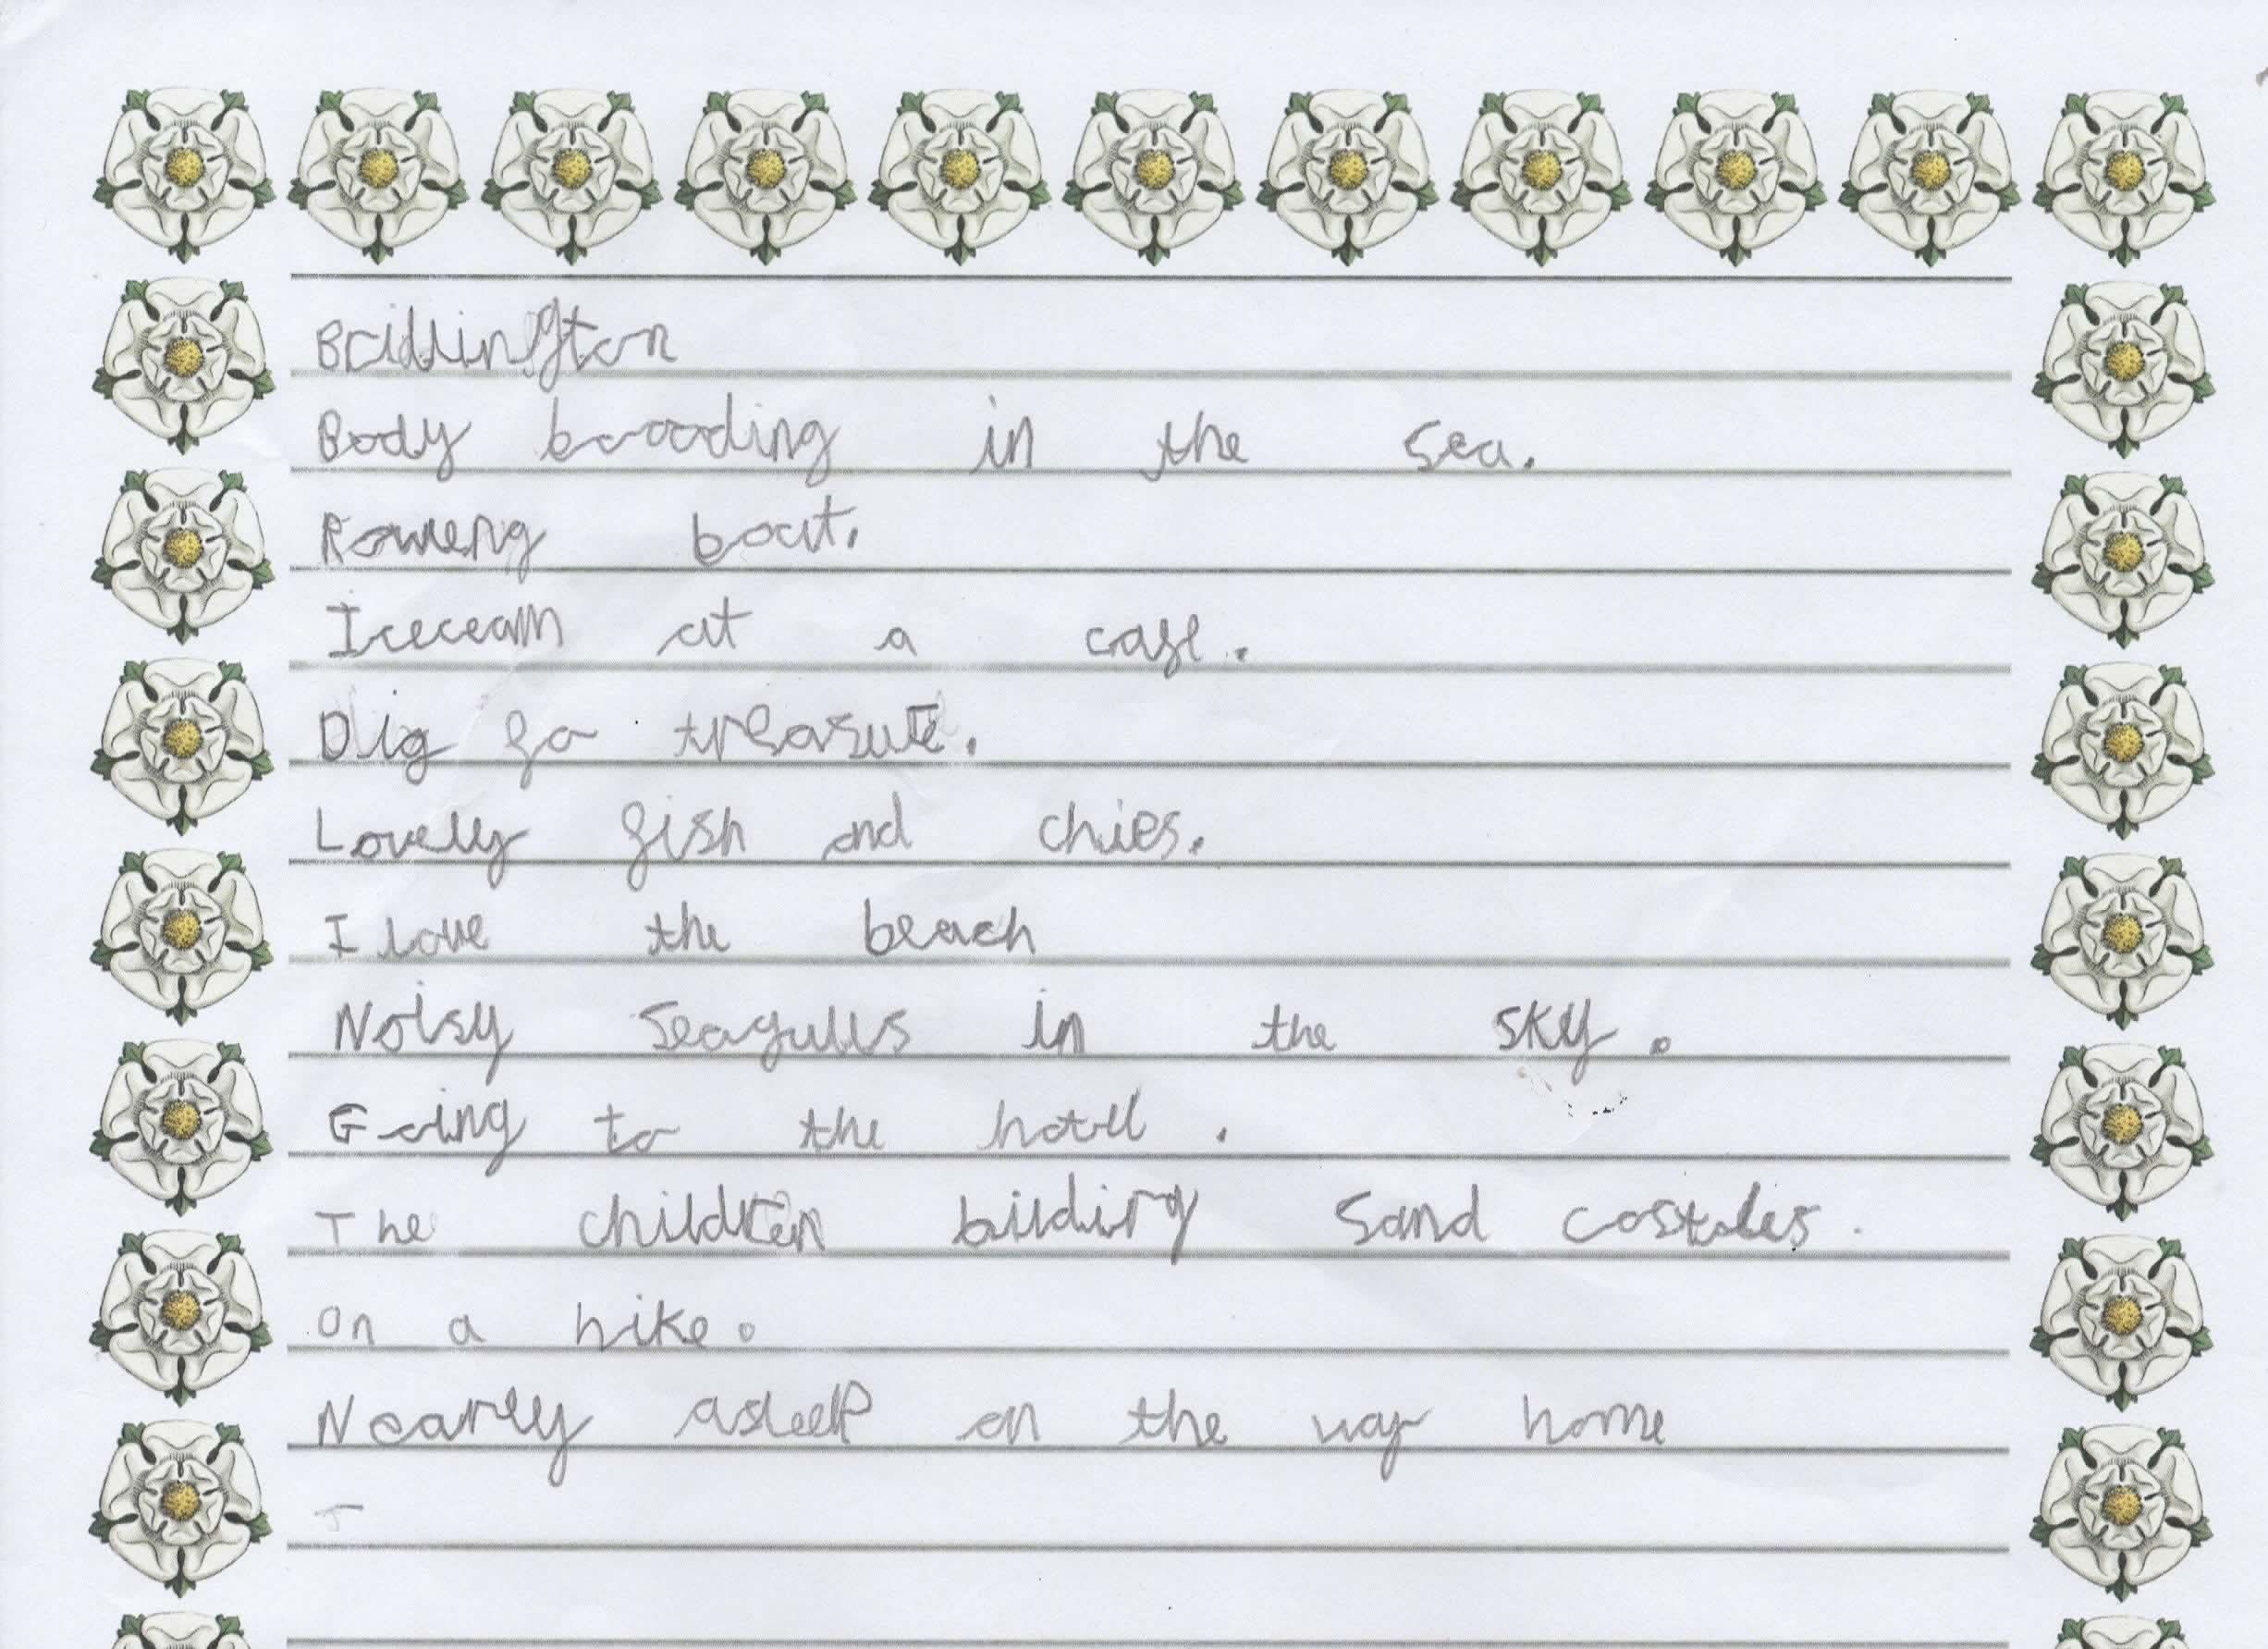 Bridlington
Body booading in the sea.
Roweng boat.
Iceceam at a cafe.
Dig fo treasure.
Lovely fish and chies.
I love the beach
Noisy Seagulls in the sky.
Going to the hotel.
The children bilding Sand costeles.
On a hike.
Nearly asleep on the way home